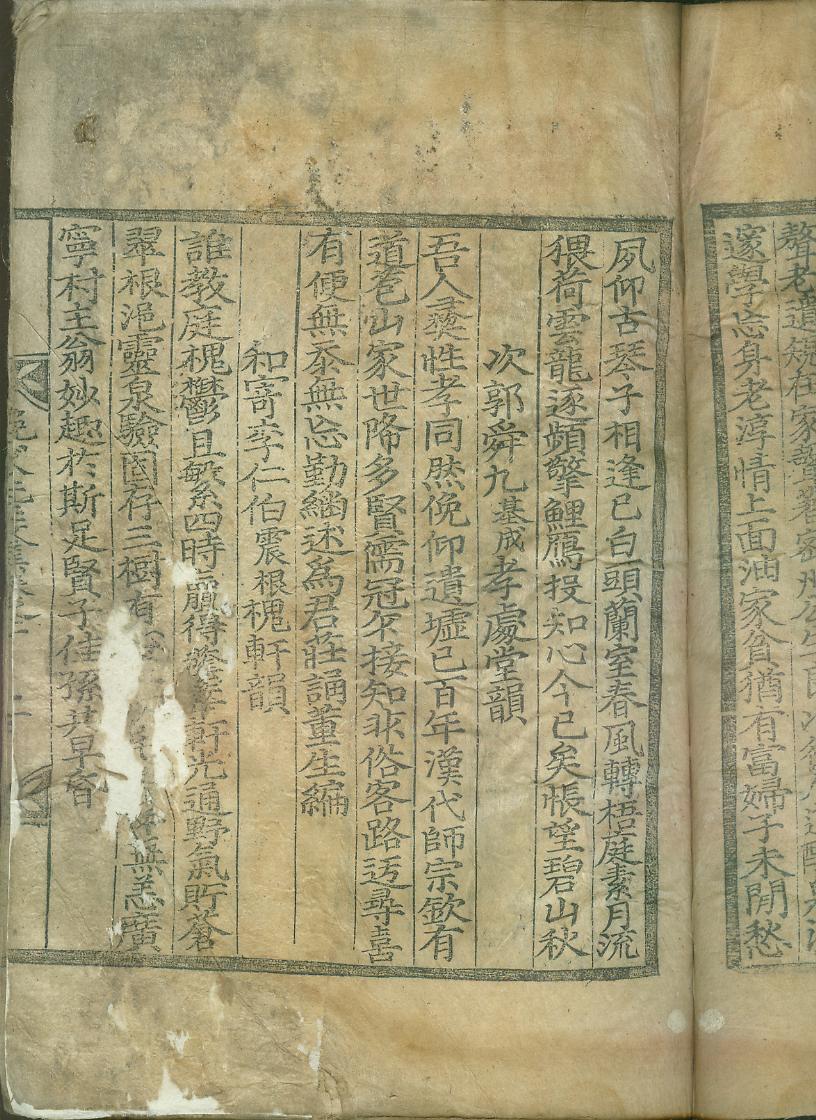 螯老遺矩在家
邃學忘身老淳情上面油家貧猶有富婦子未閒愁
夙仰古琴子相逢已白頭蘭室春風轉梧庭素月流
猥荷雲龍逐頻擎鯉鴈投知心今已矣悵望碧山秋
次郭舜九基成孝處堂韻
吾人彛性孝同然俛仰遺墟已百年漢代師宗欽有
道苞山家世降多賢儒冠不接知非俗客路迃尋喜
有便無忝無忘勤繼述爲君莊誦董生編
和寄李仁伯震根槐軒韻
誰教庭槐鬱且敏系四時贏得軒光通野氣貯蒼
翠根浥靈泉驗固存三樹有無恙廣
寧村主翁妙趣於斯足賢子佳孫共早昏